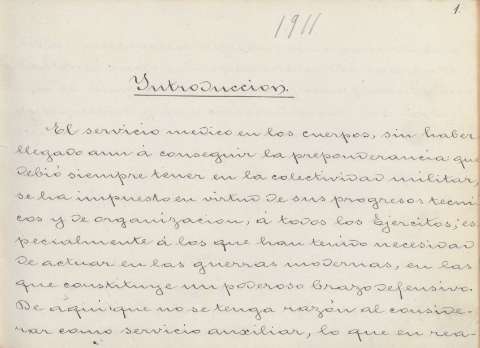 1.
1911
Introduccion.
El servicio medico en los cuerpos, sin haber
llegado aun á conseguir la preponderancia que
debió siempre tener en la colectividad militar,
se ha impuesto en virtud de sus progresos tecni-
cos y de organizacion, á todos los Ejercitos; es-
pecialmente á los que han tenido necesidad
de actuar en las guerras modernas, en las
que constituye un poderoso brazo defensivo.
De aqui que no se tenga razón al conside-
rar como servicio auxiliar, lo que en rea-